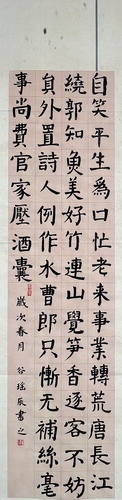 自笑平生為口忙老來事業轉荒唐長江
繞郭知魚美好竹連山覺笋香逐客不妨
貟外置詩人例作水曹郎只慚無補絲毫
事尚費官家壓酒囊 歲次春月 谷瑶辰書之